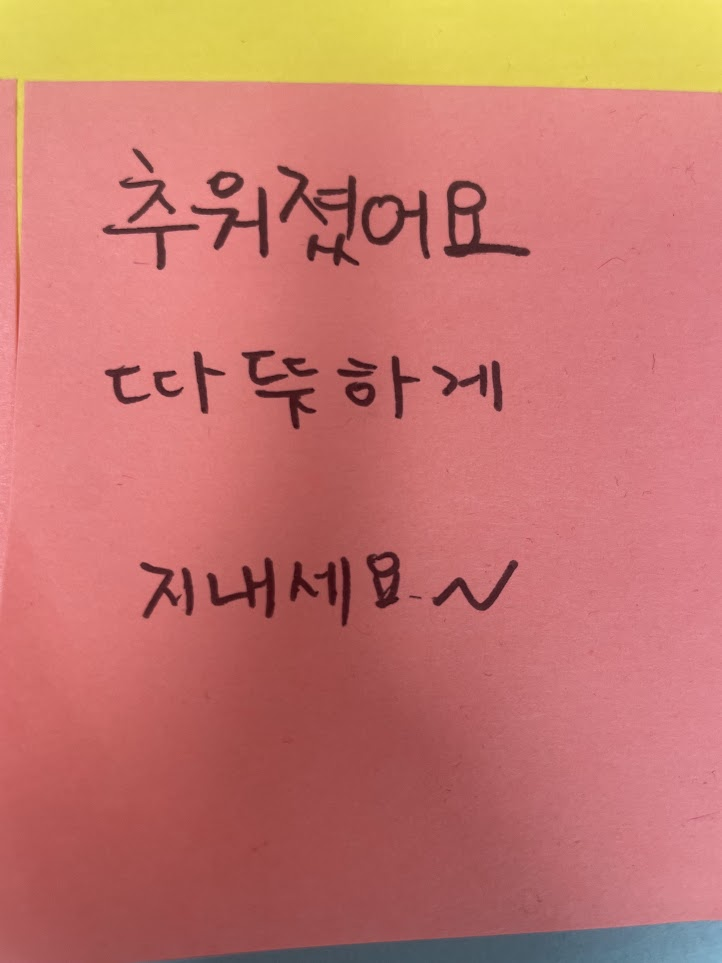 추워졌어요
따뜻하게
지내세요~